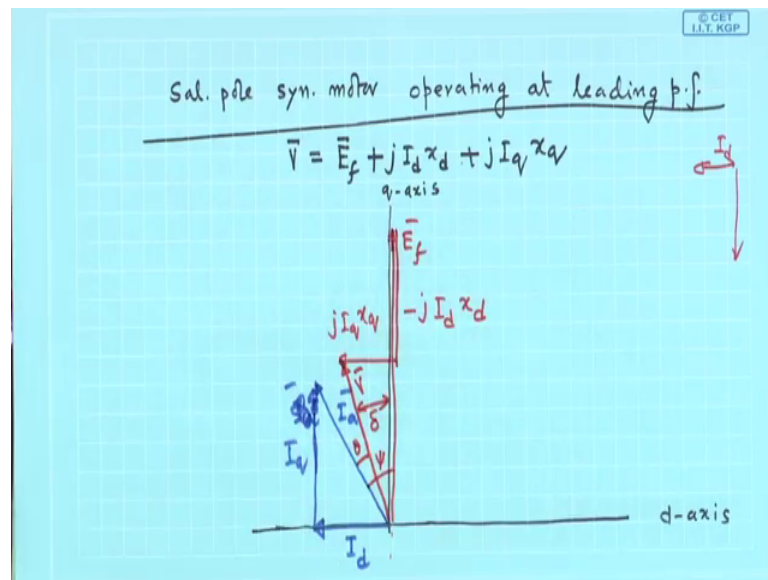 © CET
I.I.T. KGP
Sal. pole syn. motor operating at leading p.f.
V̄ = Ē_f + j I_d x_d + j I_q x_q
I_d
q-axis
Ē_f
j I_q x_q
-j I_d x_d
V̄
Ī_a
δ
θ
ψ
Ī_q
d-axis
I_d